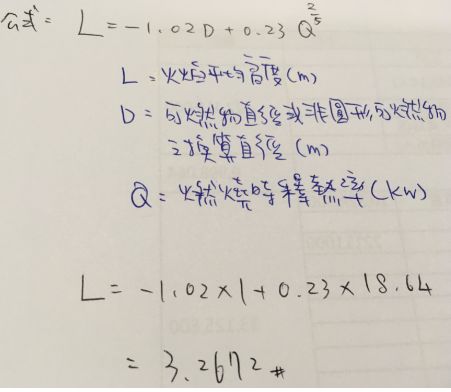 公式= L=-1.02D+0.23 Q^(2/5)
L=火焰平均高度(m)
D=可燃物直徑或非圓形可燃物
之換算直徑(m)
Q=燃燒時釋熱率(kw)
L= -1.02×1+0.23×18.64
= 3.2672 #